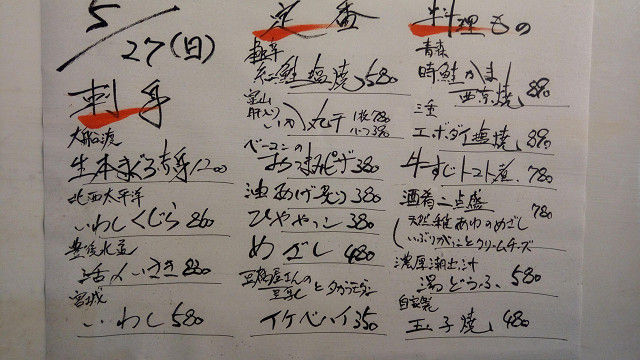 5/27(日)
刺身
大船渡
生本まぐろ赤身1200
北西太平洋
いわしくじら860
豊後水道
活〆いさき880
宮城
いわし580
定番
紅鮭塩焼580
富山
肝入りいか丸干 1枚780
ハーフ390
ベーコンの
おつまみピザ380
油あげ炙り380
ひややっこ380
めざし480
豆腐屋さんの
豆乳とタカナデシュガー
イケベハイ350
料理もの
青森
時鮭かま
西京焼890
三重
エボダイ塩焼890
牛すじトマト煮780
酒肴二点盛780
天然稚あゆのめざし
いぶりがっことクリームチーズ
濃厚潮出汁
湯どうふ580
自家製
玉子焼480